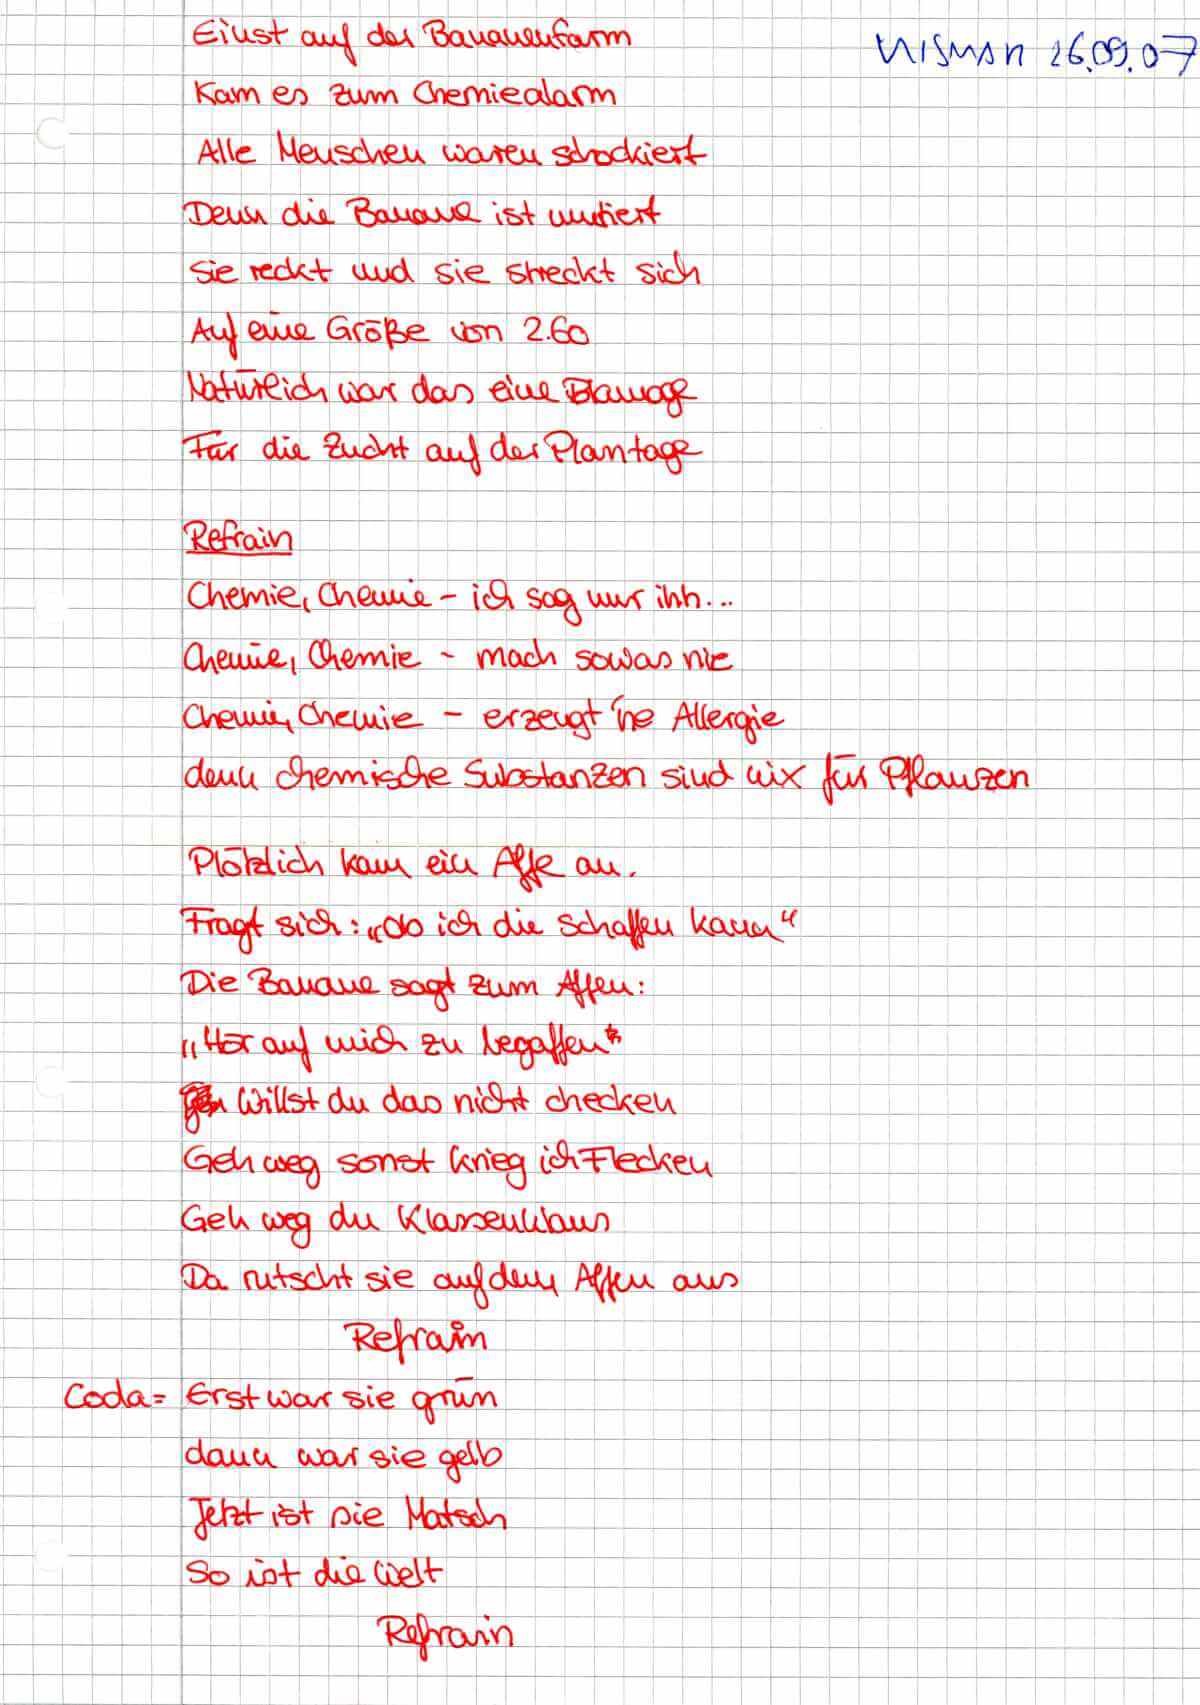 Einst auf der Bananenfarm
Kam es zum Chemiealarm
Alle Menschen waren schockiert
Denn die Banane ist mutiert
Sie reckt und sie streckt sich
Auf eine Größe von 2.60
Natürlich war das eine Blamage
Für die Zucht auf der Plantage
Refrain
Chemie, Chemie - ich sag nur ihh...
Chemie, Chemie - mach sowas nie
Chemie, Chemie - erzeugt 'ne Allergie
denn chemische Substanzen sind nix für Pflanzen
Plötzlich kam ein Affe an.
Fragt sich: „ob ich die schaffen kann“
Die Banane sagt zum Affen:
„Hör auf mich zu begaffen“
Willst du das nicht checken
Geh weg sonst krieg ich Flecken
Geh weg du Klassenklaus
Da rutscht sie auf dem Affen aus
Refrain
Coda= Erst war sie grün
dann war sie gelb
Jetzt ist sie Matsch
So ist die Welt
Refrain
26.09.07